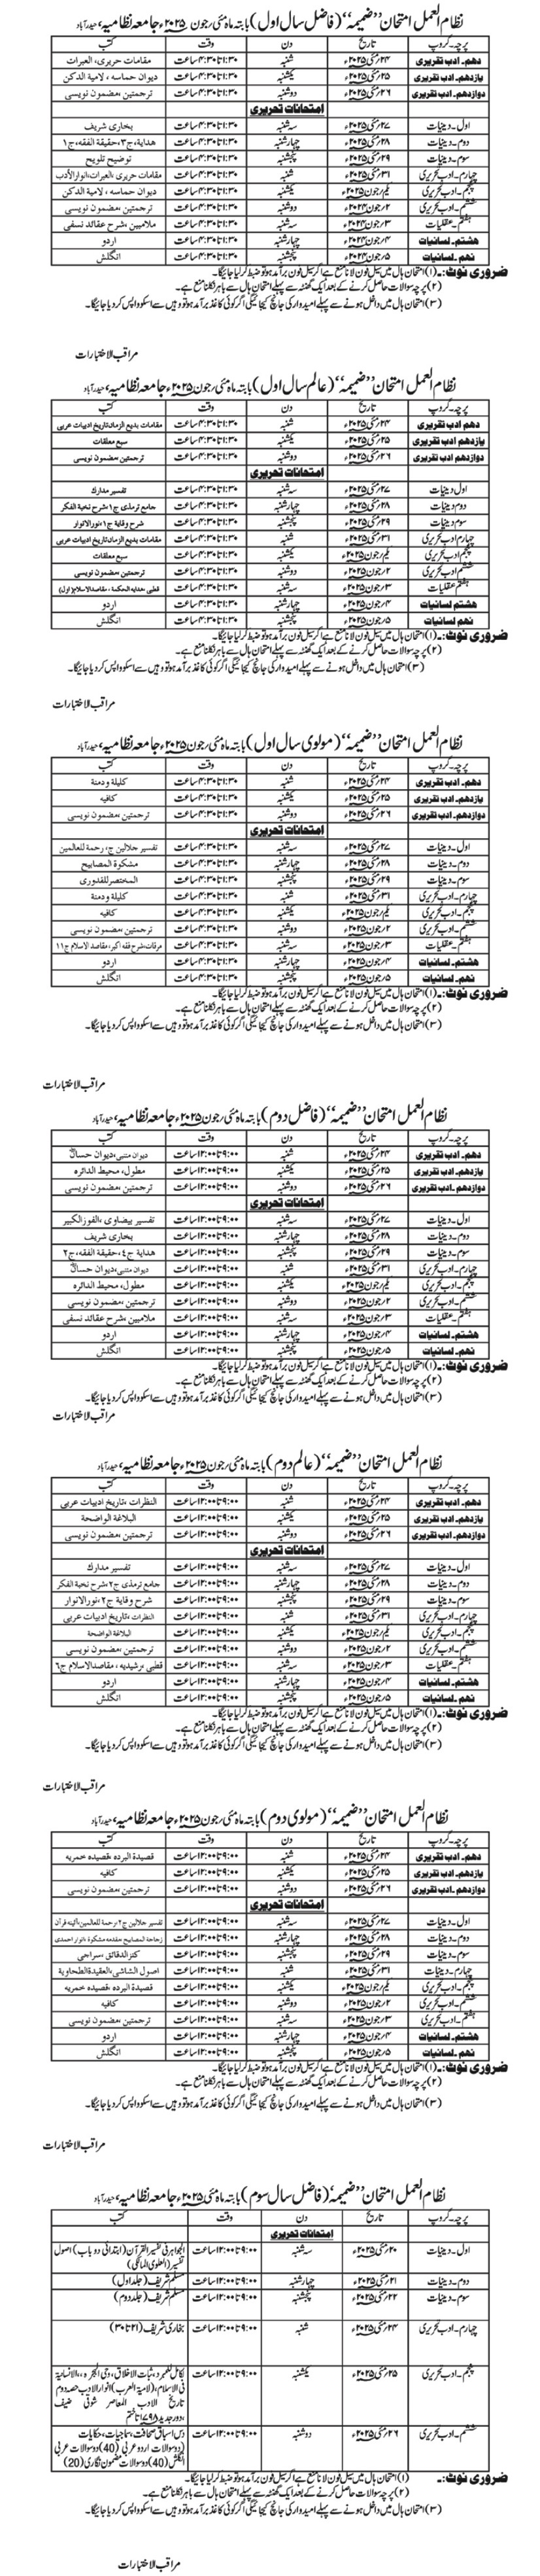 نظام العمل امتحان ’’ضمیمہ‘‘ (فاضل سال اول) بابتہ ماہ مئی/جون ۲۰۲۵ء جامعہ نظامیہ، حیدرآباد
پرچہ۔گروپ تاریخ دن وقت کتب
دھم۔ادب تقریری ۲۴/مئی ۲۰۲۵ء شنبہ ۱:۳۰تا۴:۳۰ساعت مقامات حریری، العبرات
یازدھم۔ادب تقریری ۲۵/مئی ۲۰۲۵ء یکشنبہ ۱:۳۰تا۴:۳۰ساعت دیوان حماسہ، لامیة الدکن
دوازدھم۔ادب تقریری ۲۶/مئی ۲۰۲۵ء دوشنبہ ۱:۳۰تا۴:۳۰ساعت ترجمتین،مضمون نویسی
امتحانات تحریری
اول۔دینیات ۲۷/مئی ۲۰۲۵ء سہ شنبہ ۱:۳۰تا۴:۳۰ساعت بخاری شریف
دوم۔دینیات ۲۸/مئی ۲۰۲۵ء چہارشنبہ ۱:۳۰تا۴:۳۰ساعت ھدایة، ج۳، حقیقة الفقہ، ج۱
سوم۔دینیات ۲۹/مئی ۲۰۲۵ء پنجشنبہ ۱:۳۰تا۴:۳۰ساعت توضیح تلویح
چہارم۔ادب تحریری ۳۱/مئی ۲۰۲۵ء شنبہ ۱:۳۰تا۴:۳۰ساعت مقامات حریری، العبرات، انوارالأدب
پنجم۔ادب تحریری یکم/جون ۲۰۲۵ء یکشنبہ ۱:۳۰تا۴:۳۰ساعت دیوان حماسہ، لامیة الدکن
ششم۔ادب تحریری ۲/جون ۲۰۲۴ء دوشنبہ ۱:۳۰تا۴:۳۰ساعت ترجمتین،مضمون نویسی
ہفتم۔عقلیات ۳/جون ۲۰۲۴ء سہ شنبہ ۱:۳۰تا۴:۳۰ساعت ملامبین،شرح عقائد نسفی
ھشتم۔لسانیات ۴/جون ۲۰۲۴ء چہارشنبہ ۱:۳۰تا۴:۳۰ساعت اردو
نھم۔لسانیات ۵/جون ۲۰۲۴ء پنجشنبہ ۱:۳۰تا۴:۳۰ساعت انگلش
ضروری نوٹ:۔ (۱) امتحان ہال میں سیل فون لانا منع ہے اگر سیل فون برآمد ہوتو ضبط کرلیا جائیگا۔
(۲) پرچہ سوالات حاصل کرنے کے بعد ایک گھنٹہ سے پہلے امتحان ہال سے باہر نکلنا منع ہے۔
(۳) امتحان ہال میں داخل ہونے سے پہلے امیدوار کی جانچ کیجائیگی اگر کوئی کاغذ برآمد ہوتو وہیں سے اسکو واپس کردیا جائیگا۔
مراقب الاختبارات
نظام العمل امتحان ’’ضمیمہ‘‘ (عالم سال اول) بابتہ ماہ مئی/جون ۲۰۲۵ء جامعہ نظامیہ، حیدرآباد
پرچہ۔گروپ تاریخ دن وقت کتب
دھم ادب تقریری ۲۴/مئی ۲۰۲۵ء شنبہ ۱:۳۰تا۴:۳۰ساعت مقامات بدیع الزماں،تاریخ ادبیات عربی
یازدھم ادب تقریری ۲۵/مئی ۲۰۲۵ء یکشنبہ ۱:۳۰تا۴:۳۰ساعت سبع معلقات
دوازدھم ادب تقریری ۲۶/مئی ۲۰۲۵ء دوشنبہ ۱:۳۰تا۴:۳۰ساعت ترجمتین،مضمون نویسی
امتحانات تحریری
اول دینیات ۲۷/مئی ۲۰۲۵ء سہ شنبہ ۱:۳۰تا۴:۳۰ساعت تفسیر مدارک
دوم دینیات ۲۸/مئی ۲۰۲۵ء چہارشنبہ ۱:۳۰تا۴:۳۰ساعت جامع ترمذی ج۱،شرح نخبة الفکر
سوم دینیات ۲۹/مئی ۲۰۲۵ء پنجشنبہ ۱:۳۰تا۴:۳۰ساعت شرح وقایة ج۱،نورالانوار
چہارم ادب تحریری ۳۱/مئی ۲۰۲۵ء شنبہ ۱:۳۰تا۴:۳۰ساعت مقامات بدیع الزماں،تاریخ ادبیات عربی
پنجم ادب تحریری یکم/جون ۲۰۲۵ء یکشنبہ ۱:۳۰تا۴:۳۰ساعت سبع معلقات
ششم ادب تحریری ۲/جون ۲۰۲۵ء دوشنبہ ۱:۳۰تا۴:۳۰ساعت ترجمتین،مضمون نویسی
ہفتم عقلیات ۳/جون ۲۰۲۵ء سہ شنبہ ۱:۳۰تا۴:۳۰ساعت قطبی،ھدایہ الحکمة، مقاصدالاسلام(اول)
ھشتم لسانیات ۴/جون ۲۰۲۵ء چہارشنبہ ۱:۳۰تا۴:۳۰ساعت اردو
نھم لسانیات ۵/جون ۲۰۲۵ء پنجشنبہ ۱:۳۰تا۴:۳۰ساعت انگلش
ضروری نوٹ:۔ (۱) امتحان ہال میں سیل فون لانا منع ہے اگر سیل فون برآمد ہوتو ضبط کرلیا جائیگا۔
(۲) پرچہ سوالات حاصل کرنے کے بعد ایک گھنٹہ سے پہلے امتحان ہال سے باہر نکلنا منع ہے۔
(۳) امتحان ہال میں داخل ہونے سے پہلے امیدوار کی جانچ کیجائیگی اگر کوئی کاغذ برآمد ہوتو وہیں سے اسکو واپس کردیا جائیگا۔
مراقب الاختبارات
نظام العمل امتحان ’’ضمیمہ‘‘ (مولوی سال اول) بابتہ ماہ مئی/جون ۲۰۲۵ء جامعہ نظامیہ، حیدرآباد
پرچہ۔گروپ تاریخ دن وقت کتب
دھم۔ادب تقریری ۲۴/مئی ۲۰۲۵ء شنبہ ۱:۳۰تا۴:۳۰ساعت کلیلة ودمنة
یازدھم۔ادب تقریری ۲۵/مئی ۲۰۲۵ء یکشنبہ ۱:۳۰تا۴:۳۰ساعت کافیہ
دوازدھم۔ادب تقریری ۲۶/مئی ۲۰۲۵ء دوشنبہ ۱:۳۰تا۴:۳۰ساعت ترجمتین،مضمون نویسی
امتحانات تحریری
اول۔دینیات ۲۷/مئی ۲۰۲۵ء سہ شنبہ ۱:۳۰تا۴:۳۰ساعت تفسیر جلالین ج، رحمة للعالمین
دوم۔دینیات ۲۸/مئی ۲۰۲۵ء چہارشنبہ ۱:۳۰تا۴:۳۰ساعت مشکوة المصابیح
سوم۔دینیات ۲۹/مئی ۲۰۲۵ء پنجشنبہ ۱:۳۰تا۴:۳۰ساعت المختصرللقدوری
چہارم۔ادب تحریری ۳۱/مئی ۲۰۲۵ء شنبہ ۱:۳۰تا۴:۳۰ساعت کلیلة ودمنة
پنجم۔ادب تحریری یکم/جون ۲۰۲۵ء یکشنبہ ۱:۳۰تا۴:۳۰ساعت کافیہ
ششم۔ادب تحریری ۲/جون ۲۰۲۵ء دوشنبہ ۱:۳۰تا۴:۳۰ساعت ترجمتین،مضمون نویسی
ہفتم۔عقلیات ۳/جون ۲۰۲۵ء سہ شنبہ ۱:۳۰تا۴:۳۰ساعت مرقات،شرح فقہ اکبر، مقاصد الاسلام ج۱۱
ھشتم۔لسانیات ۴/جون ۲۰۲۵ء چہارشنبہ ۱:۳۰تا۴:۳۰ساعت اردو
نھم۔لسانیات ۵/جون ۲۰۲۵ء پنجشنبہ ۱:۳۰تا۴:۳۰ساعت انگلش
ضروری نوٹ:۔ (۱) امتحان ہال میں سیل فون لانا منع ہے اگر سیل فون برآمد ہوتو ضبط کرلیا جائیگا۔
(۲) پرچہ سوالات حاصل کرنے کے بعد ایک گھنٹہ سے پہلے امتحان ہال سے باہر نکلنا منع ہے۔
(۳) امتحان ہال میں داخل ہونے سے پہلے امیدوار کی جانچ کیجائیگی اگر کوئی کاغذ برآمد ہوتو وہیں سے اسکو واپس کردیا جائیگا۔
مراقب الاختبارات
نظام العمل امتحان ’’ضمیمہ‘‘ (فاضل دوم) بابتہ ماہ مئی/جون ۲۰۲۵ء جامعہ نظامیہ، حیدرآباد
پرچہ۔گروپ تاریخ دن وقت کتب
دھم۔ادب تقریری ۲۴/مئی ۲۰۲۵ء شنبہ ۹:۰۰تا۱۲:۰۰ساعت دیوان متنبی،دیوان حسانؓ
یازدھم۔ادب تقریری ۲۵/مئی ۲۰۲۵ء یکشنبہ ۹:۰۰تا۱۲:۰۰ساعت مطول، محیط الدائرہ
دوازدھم۔ادب تقریری ۲۶/مئی ۲۰۲۵ء دوشنبہ ۹:۰۰تا۱۲:۰۰ساعت ترجمتین،مضمون نویسی
امتحانات تحریری
اول۔دینیات ۲۷/مئی ۲۰۲۵ء سہ شنبہ ۹:۰۰تا۱۲:۰۰ساعت تفسیر بیضاوی، الفوزالکبیر
دوم۔دینیات ۲۸/مئی ۲۰۲۵ء چہارشنبہ ۹:۰۰تا۱۲:۰۰ساعت بخاری شریف
سوم۔دینیات ۲۹/مئی ۲۰۲۵ء پنجشنبہ ۹:۰۰تا۱۲:۰۰ساعت ھدایة ج٤، حقیقة الفقہ، ج۲
چہارم۔ادب تحریری ۳۱/مئی ۲۰۲۵ء شنبہ ۹:۰۰تا۱۲:۰۰ساعت دیوان متنبی،دیوان حسانؓ
پنجم۔ادب تحریری یکم/جون ۲۰۲۵ء یکشنبہ ۹:۰۰تا۱۲:۰۰ساعت مطول، محیط الدائرہ
ششم۔ادب تحریری ۲/جون ۲۰۲۵ء دوشنبہ ۹:۰۰تا۱۲:۰۰ساعت ترجمتین،مضمون نویسی
ہفتم۔عقلیات ۳/جون ۲۰۲۵ء سہ شنبہ ۹:۰۰تا۱۲:۰۰ساعت ملامبین،شرح عقائد نسفی
ھشتم۔لسانیات ۴/جون ۲۰۲۵ء چہارشنبہ ۹:۰۰تا۱۲:۰۰ساعت اردو
نھم۔لسانیات ۵/جون ۲۰۲۵ء پنجشنبہ ۹:۰۰تا۱۲:۰۰ساعت انگلش
ضروری نوٹ:۔ (۱) امتحان ہال میں سیل فون لانا منع ہے اگر سیل فون برآمد ہوتو ضبط کرلیا جائیگا۔
(۲) پرچہ سوالات حاصل کرنے کے بعد ایک گھنٹہ سے پہلے امتحان ہال سے باہر نکلنا منع ہے۔
(۳) امتحان ہال میں داخل ہونے سے پہلے امیدوار کی جانچ کیجائیگی اگر کوئی کاغذ برآمد ہوتو وہیں سے اسکو واپس کردیا جائیگا۔
مراقب الاختبارات
نظام العمل امتحان ’’ضمیمہ‘‘ (عالم دوم) بابتہ ماہ مئی/جون ۲۰۲۵ء جامعہ نظامیہ، حیدرآباد
پرچہ۔گروپ تاریخ دن وقت کتب
دھم۔ادب تقریری ۲۴/مئی ۲۰۲۵ء شنبہ ۹:۰۰تا۱۲:۰۰ساعت النظرات،تاریخ ادبیات عربی
یازدھم۔ادب تقریری ۲۵/مئی ۲۰۲۵ء یکشنبہ ۹:۰۰تا۱۲:۰۰ساعت البلاغة الواضحة
دوازدھم۔ادب تقریری ۲۶/مئی ۲۰۲۵ء دوشنبہ ۹:۰۰تا۱۲:۰۰ساعت ترجمتین،مضمون نویسی
امتحانات تحریری
اول۔دینیات ۲۷/مئی ۲۰۲۵ء سہ شنبہ ۹:۰۰تا۱۲:۰۰ساعت تفسیر مدارک
دوم۔دینیات ۲۸/مئی ۲۰۲۵ء چہارشنبہ ۹:۰۰تا۱۲:۰۰ساعت جامع ترمذی ج۲،شرح نخبة الفکر
سوم۔دینیات ۲۹/مئی ۲۰۲۵ء پنجشنبہ ۹:۰۰تا۱۲:۰۰ساعت شرح وقایة ج۲،نورالانوار
چہارم۔ادب تحریری ۳۱/مئی ۲۰۲۵ء شنبہ ۹:۰۰تا۱۲:۰۰ساعت النظرات،تاریخ ادبیات عربی
پنجم۔ادب تحریری یکم/جون ۲۰۲۵ء یکشنبہ ۹:۰۰تا۱۲:۰۰ساعت البلاغة الواضحة
ششم۔ادب تحریری ۲/جون ۲۰۲۵ء دوشنبہ ۹:۰۰تا۱۲:۰۰ساعت ترجمتین،مضمون نویسی
ہفتم۔عقلیات ۳/جون ۲۰۲۵ء سہ شنبہ ۹:۰۰تا۱۲:۰۰ساعت قطبی،رشیدیہ، مقاصدالاسلام ج٦
ھشتم۔لسانیات ۴/جون ۲۰۲۵ء چہارشنبہ ۹:۰۰تا۱۲:۰۰ساعت اردو
نھم۔لسانیات ۵/جون ۲۰۲۵ء پنجشنبہ ۹:۰۰تا۱۲:۰۰ساعت انگلش
ضروری نوٹ:۔ (۱) امتحان ہال میں سیل فون لانا منع ہے اگر سیل فون برآمد ہوتو ضبط کرلیا جائیگا۔
(۲) پرچہ سوالات حاصل کرنے کے بعد ایک گھنٹہ سے پہلے امتحان ہال سے باہر نکلنا منع ہے۔
(۳) امتحان ہال میں داخل ہونے سے پہلے امیدوار کی جانچ کیجائیگی اگر کوئی کاغذ برآمد ہوتو وہیں سے اسکو واپس کردیا جائیگا۔
مراقب الاختبارات
نظام العمل امتحان ’’ضمیمہ‘‘ (مولوی دوم) بابتہ ماہ مئی/جون ۲۰۲۵ء جامعہ نظامیہ، حیدرآباد
پرچہ۔گروپ تاریخ دن وقت کتب
دھم۔ادب تقریری ۲۴/مئی ۲۰۲۵ء شنبہ ۹:۰۰تا۱۲:۰۰ساعت قصیدة البردہ،قصیدہ خمریہ
یازدھم۔ادب تقریری ۲۵/مئی ۲۰۲۵ء یکشنبہ ۹:۰۰تا۱۲:۰۰ساعت کافیہ
دوازدھم۔ادب تقریری ۲۶/مئی ۲۰۲۵ء دوشنبہ ۹:۰۰تا۱۲:۰۰ساعت ترجمتین،مضمون نویسی
امتحانات تحریری
اول۔دینیات ۲۷/مئی ۲۰۲۵ء سہ شنبہ ۹:۰۰تا۱۲:۰۰ساعت تفسیر جلالین ج۲،رحمة للعالمین،آئینہ قرآن
دوم۔دینیات ۲۸/مئی ۲۰۲۵ء چہارشنبہ ۹:۰۰تا۱۲:۰۰ساعت زجاجة المصابیح مقدمہ مشکوة،انوار احمدی
سوم۔دینیات ۲۹/مئی ۲۰۲۵ء پنجشنبہ ۹:۰۰تا۱۲:۰۰ساعت کنزالدقائق،سراجی
چہارم۔دینیات ۳۱/مئی ۲۰۲۵ء شنبہ ۹:۰۰تا۱۲:۰۰ساعت اصول الشاشی،العقیدةالطحاویة
پنجم۔ادب تحریری یکم/جون ۲۰۲۵ء یکشنبہ ۹:۰۰تا۱۲:۰۰ساعت قصیدة البردہ،قصیدہ خمریہ
ششم۔ادب تحریری ۲/جون ۲۰۲۵ء دوشنبہ ۹:۰۰تا۱۲:۰۰ساعت کافیہ
ہفتم۔ادب تحریری ۳/جون ۲۰۲۵ء سہ شنبہ ۹:۰۰تا۱۲:۰۰ساعت ترجمتین،مضمون نویسی
ھشتم۔لسانیات ۴/جون ۲۰۲۵ء چہارشنبہ ۹:۰۰تا۱۲:۰۰ساعت اردو
نھم۔لسانیات ۵/جون ۲۰۲۵ء پنجشنبہ ۹:۰۰تا۱۲:۰۰ساعت انگلش
ضروری نوٹ:۔ (۱) امتحان ہال میں سیل فون لانا منع ہے اگر سیل فون برآمد ہوتو ضبط کرلیا جائیگا۔
(۲) پرچہ سوالات حاصل کرنے کے بعد ایک گھنٹہ سے پہلے امتحان ہال سے باہر نکلنا منع ہے۔
(۳) امتحان ہال میں داخل ہونے سے پہلے امیدوار کی جانچ کیجائیگی اگر کوئی کاغذ برآمد ہوتو وہیں سے اسکو واپس کردیا جائیگا۔
مراقب الاختبارات
نظام العمل امتحان ’’ضمیمہ‘‘ (فاضل سال سوم) بابتہ ماہ مئی ۲۰۲۵ء جامعہ نظامیہ، حیدرآباد
پرچہ۔گروپ تاریخ دن وقت کتب
امتحانات تحریری
اول۔دینیات ۲۰/مئی ۲۰۲۵ء سہ شنبہ ۹:۰۰تا۱۲:۰۰ساعت الجواہر فی تفسیر القرآن (ابتدائی دو باب) اصول
تفسیر (العلوی المالکی)
دوم۔دینیات ۲۱/مئی ۲۰۲۵ء چہارشنبہ ۹:۰۰تا۱۲:۰۰ساعت مسلم شریف (جلد اول)
سوم۔دینیات ۲۲/مئی ۲۰۲۵ء پنجشنبہ ۹:۰۰تا۱۲:۰۰ساعت مسلم شریف (جلد دوم)
چہارم۔ادب تحریری ۲۴/مئی ۲۰۲۵ء شنبہ ۹:۰۰تا۱۲:۰۰ساعت بخاری شریف (۲۱ تا ۳۰)
پنجم۔ادب تحریری ۲۵/مئی ۲۰۲۵ء یکشنبہ ۹:۰۰تا۱۲:۰۰ساعت الکامل للمبرد، نبات الاخلاق، الانسانیة
فی الاسلام، (لامیة العرب) انوار الادب حصہ دوم
تاریخ الادب المعاصر شوقی ضیف
،دور جدید ۱۷۹۸ تا ختم
ششم۔ادب تحریری ۲۶/مئی ۲۰۲۵ء دوشنبہ ۹:۰۰تا۱۲:۰۰ساعت دس اسباق صحافت، سماجیات، حکایات
(دو سوالات اردو عربی (40) دو سوالات عربی
انگلش (40) دو سوالات مضمون نگاری (20)
ضروری نوٹ:۔ (۱) امتحان ہال میں سیل فون لانا منع ہے اگر سیل فون برآمد ہوتو ضبط کرلیا جائیگا۔
(۲) پرچہ سوالات حاصل کرنے کے بعد ایک گھنٹہ سے پہلے امتحان ہال سے باہر نکلنا منع ہے۔
(۳) امتحان ہال میں داخل ہونے سے پہلے امیدوار کی جانچ کیجائیگی اگر کوئی کاغذ برآمد ہوتو وہیں سے اسکو واپس کردیا جائیگا۔
مراقب الاختبارات